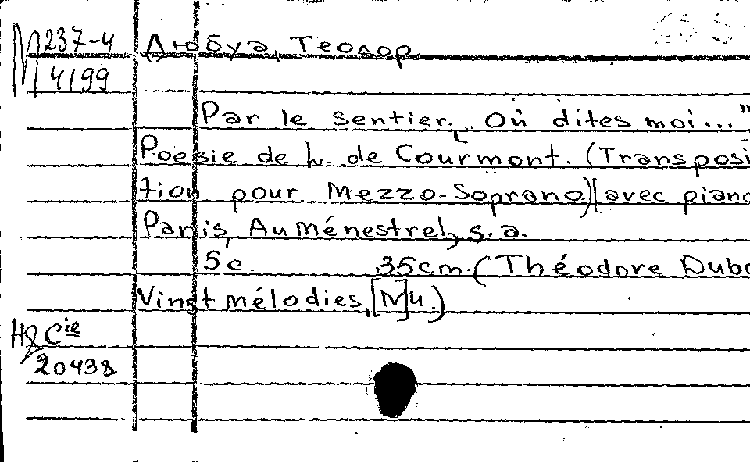 М 237-4
4199
Дюбуа, Теодор
Par le sentier. „Où dites moi..."
Poésie de L. de Courmont. (Transposi
tion pour Mezzo-Soprano) [avec piano
Paris, Au Ménestrel, s.a.
5c. 35cm. (Théodore Dubo
Vingt mélodies, [N]4.)
H & Cie
20438